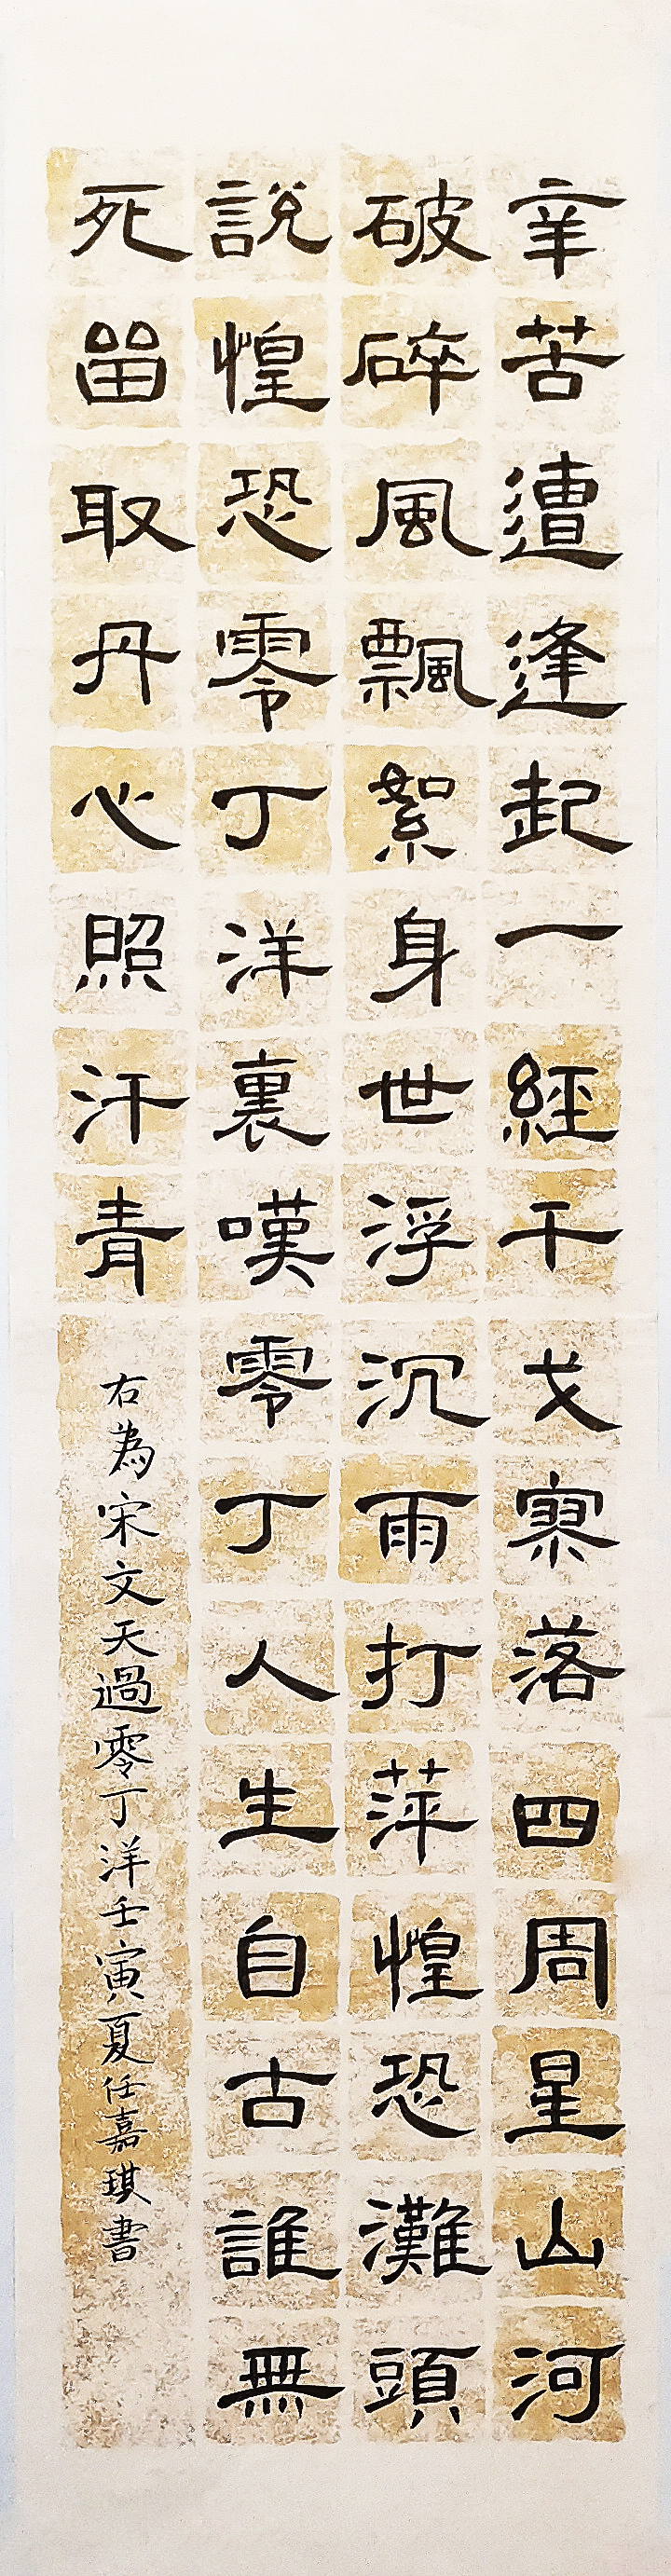 辛苦遭逢起一經干戈寥落四周星山河
破碎風飄絮身世浮沉雨打萍惶恐灘頭
說惶恐零丁洋裏嘆零丁人生自古誰無
死留取丹心照汗青
右為宋文天過零丁洋壬寅夏任嘉琪書